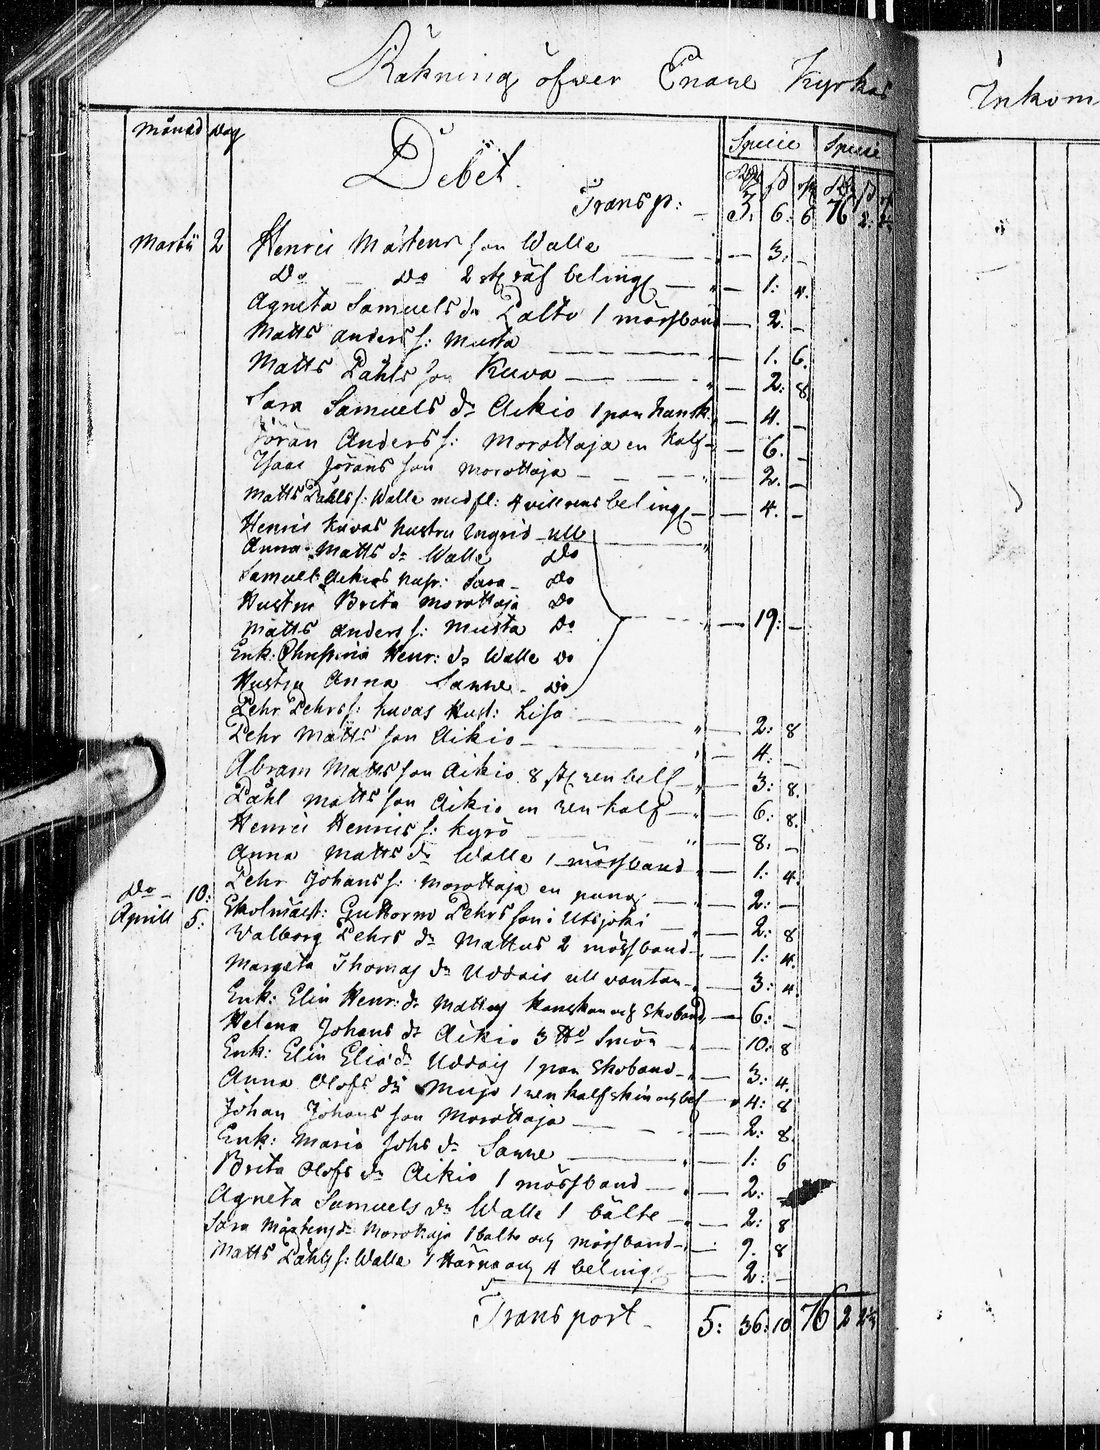 Räkning öfwer Enare Kyrkas
Inkom
Månad Dag Debet. Specie Specie
Rdr ß rst Rdr ß rst
Transp: 3. 6: 6 76 2:
Martii 2 Henric Mårtens son Walle 3: -
Do Do 2 st räf beling 1: 4.
Agneta Samuels dr Palto 1 mössband 2. -
Matts Anders s: Musta 1. 6.
Matts Påhls son Kuva 2: 8
Sara Samuels dr Aikio 1 par handsk 4. -
Jöran Anders s: Morottaja en kalf 6. -
Isaac Jörans son Morottaja 2. -
Matts Påhls s: Walle med fl: 4 villrens beling 4. -
Henric Kuvas hustru Ingrid ull
Anna Matts dr Walle Do
Samuel Aikios hust: Sara Do
Hustru Brita Morottaja Do
Matts Anders s: Musta Do 19: -
Enk: Christina Henr: dr Walle Do
Hustru Anna Sarre Do
Pehr Pehrs s: Kuvas Hust: Lisa 2: 8
Pehr Matts son Aikio 4. -
Abram Matts son Aikio 8 st ren bell 3: 8.
Påhl Matts son Aikio en ren kalf 6: 8.
Henric Henrics s: Kyrö 8: -
Anna Matts dr Walle 1 mössband 1: 4.
Do 10: Pehr Johans s: Morottaja en pung 2: -
Aprill 5: Skolmäst: Guttorm Pehrs son i Utsjoki 2: 8
Walborg Pehrs dr Mattus 2 mössband 1: 4.
Margeta Thomas dr Uddais ull vantar 3: 4.
Enk: Elin Henr: dr Mattus Handskar och Skoband 6: -
Helena Johans dr Aikio 3 ℔ Smör 10: 8
Enk: Elin Elia dr Uddais 1 par Skoband 3: 4.
Anna Olofs dr Mujo 1 ren kalfskin och bel 4: 8
Johan Johans son Morottaja 2: 8
Enk: Maria Johs dr Sarre 1: 6
Brita Olofs dr Aikio 1 mössband 2: -
Agneta Samuels dr Walle 1 bälte 2: 8
Sara Mårtens dr Morottaja 1 balte och mössband 9. 8
Matts Påhls s: Walle 1 och 4 beling 2: -
Transport 5: 36: 10 76 2